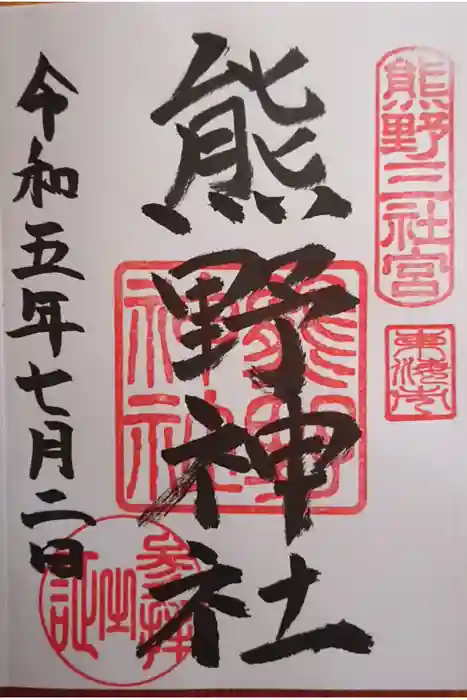 熊野三社宮
東海市
熊野神社
熊野神社
令和五年七月二日
参拝之証